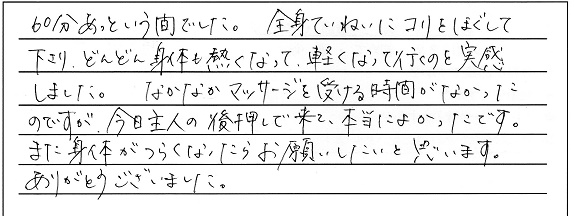 60分あっという間でした。 全身ていねいにコリをほぐして
下さり、どんどん身体も熱くなって、軽くなって行くのを実感
しました。 なかなかマッサージを受ける時間がなかった
のですが、今日主人の後押しで来て、本当によかったです。
また身体がつらくなったらお願いしたいと思います。
ありがとうございました。